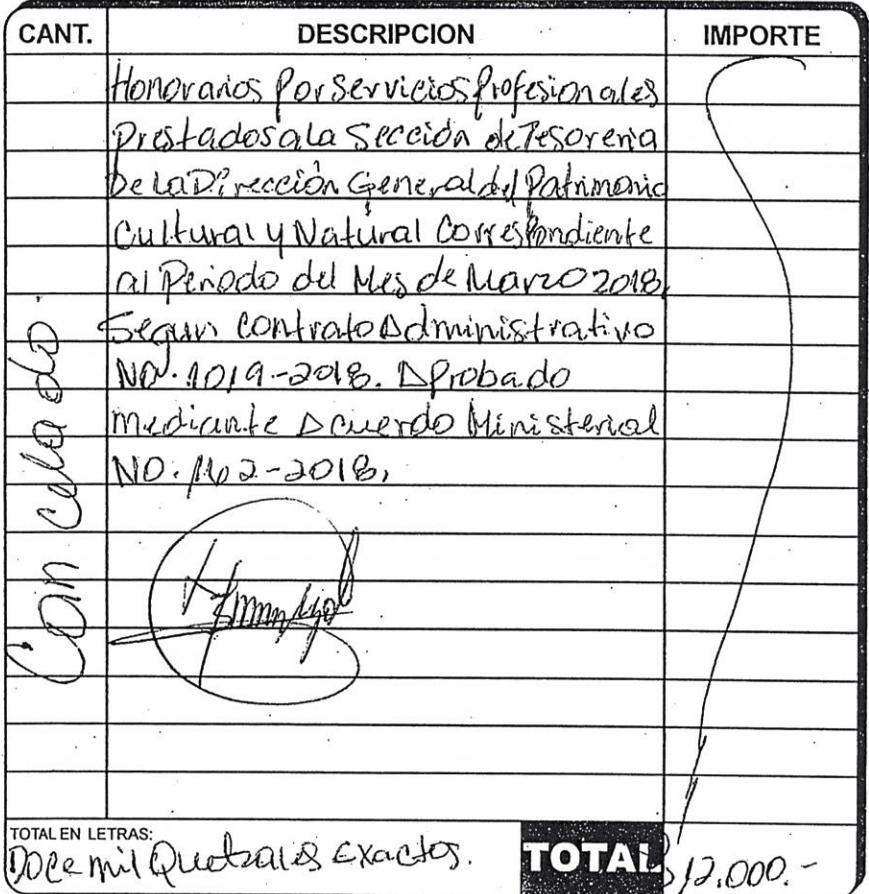 CANT. DESCRIPCION IMPORTE
Honorarios Por Servicios Profesionales
Prestados a la Sección de Tesoreria
De La Dirección General del Patrimonio
Cultural y Natural Correspondiente
al Periodo del Mes de Marzo 2018,
Segun Contrato Administrativo
NO. 1019-2018. Aprobado
mediante Acuerdo Ministerial
NO. 162-2018,
Cancelado
TOTAL EN LETRAS:
Doce mil Quetzales Exactos.
TOTAL 12,000.-